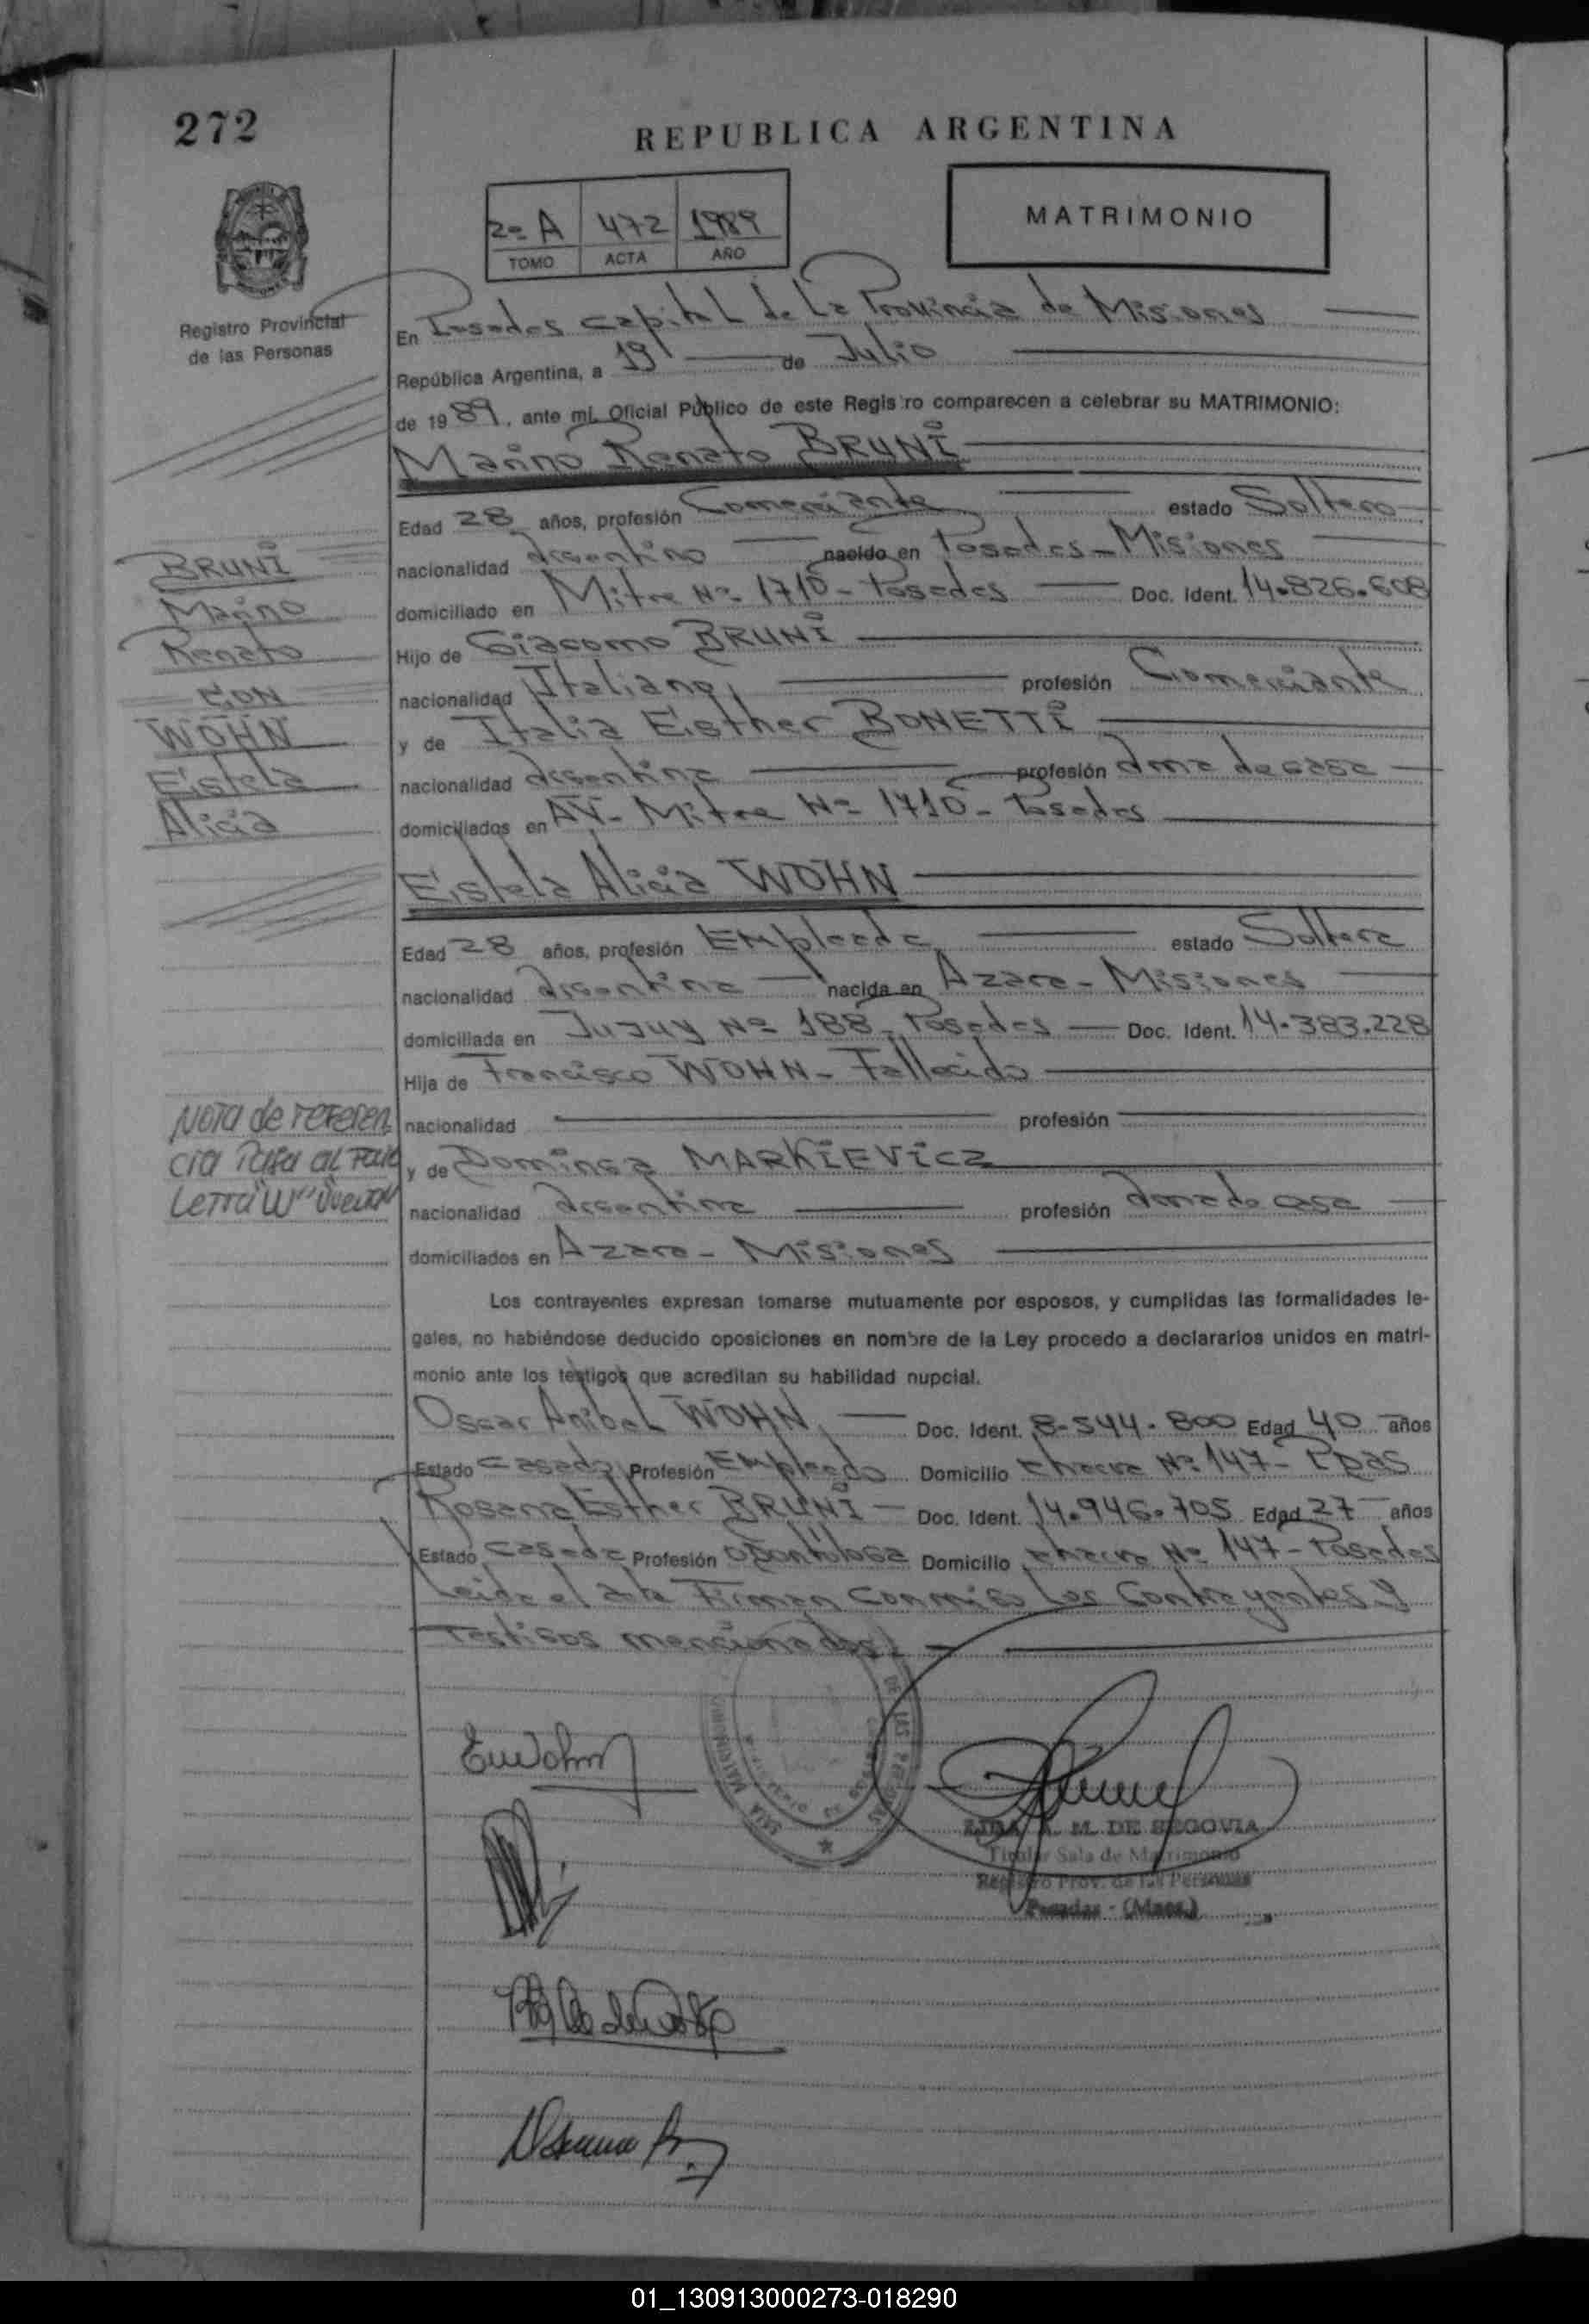 272
REPUBLICA ARGENTINA
2º A 472 1989
TOMO ACTA AÑO
MATRIMONIO
Registro Provincial
de las Personas
En Posadas capital de la Provincia de Misiones
República Argentina, a 19 de Julio
de 1989, ante mi, Oficial Público de este Registro comparecen a celebrar su MATRIMONIO:
Marino Renato BRUNI
Edad 28 años, profesión Comerciante estado Soltero
nacionalidad Argentino nacido en Posadas - Misiones
domiciliado en Mitre Nº 1710 - Posadas Doc. Ident. 14.826.608
Hijo de Giacomo BRUNI
nacionalidad Italiano, profesión Comerciante
y de Italia Esther BONETTI
nacionalidad Argentina profesión Ama de casa
domiciliados en AV. Mitre Nº 1710 - Posadas
BRUNI
Marino
Renato
CON
WOHN
Estela
Alicia
Estela Alicia WOHN
Edad 28 años, profesión Empleada estado Soltera
nacionalidad Argentina nacida en Azara - Misiones
domiciliada en Jujuy Nº 188 - Posadas Doc. Ident. 14.383.228
Hija de Francisco WOHN - Fallecido
nacionalidad profesión
y de Dominga MARKIEVICZ
nacionalidad Argentina profesión Ama de casa
domiciliados en Azara - Misiones
Nota de referen
cia Pasa al
Letra "W"
Los contrayentes expresan tomarse mutuamente por esposos, y cumplidas las formalidades le-
gales, no habiéndose deducido oposiciones en nombre de la Ley procedo a declararlos unidos en matri-
monio ante los testigos que acreditan su habilidad nupcial.
Oscar Anibal WOHN, Doc. Ident. 8.544.800 Edad 40 años
Estado Casado Profesión Empleado Domicilio chacra Nº 147 - Pdas
Rosana Esther BRUNI - Doc. Ident. 14.946.705 Edad 27 años
Estado Casada Profesión Odontóloga Domicilio chacra Nº 147 - Posadas
Leida el acta Firman conmigo Los Contrayentes y
Testigos mencionados.
DE LAS PERSONAS
SALA MATRIMONIO
Ewohn
A. M. DE SEGOVIA
Titular Sala de Matrimonio
Registro Prov. de las Personas
Posadas - (Mnes.)
01_130913000273-018290